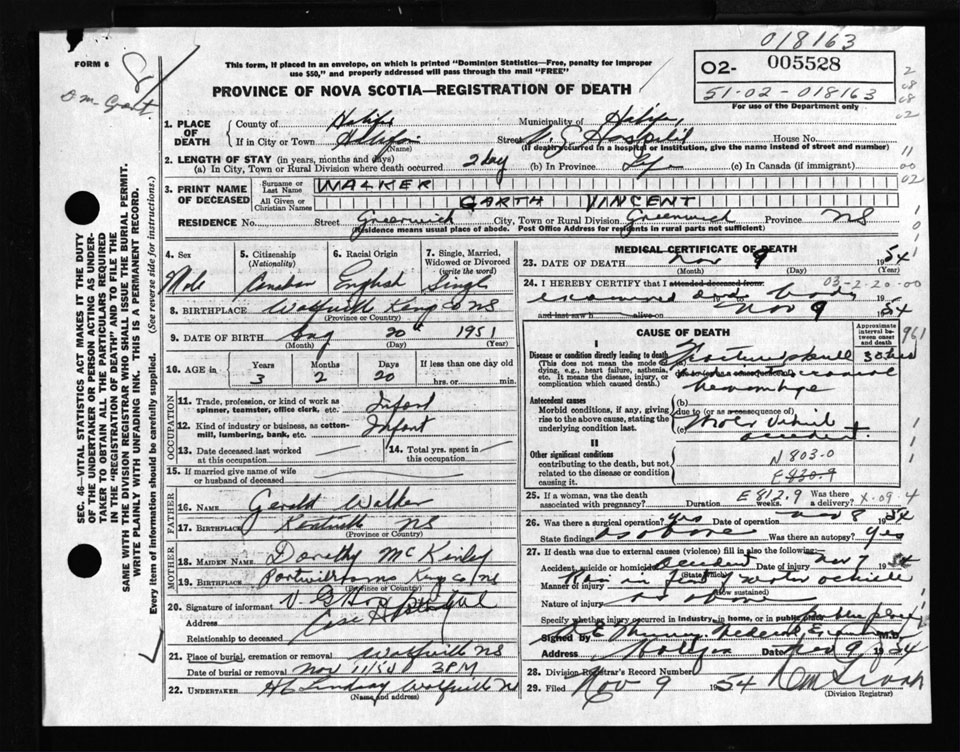 018163
FORM 6
This form, if placed in an envelope, on which is printed "Dominion Statistics—Free, penalty for improper
use $50," and properly addressed will pass through the mail "FREE"
02- 005528
51-02-018163
For use of the Department only
PROVINCE OF NOVA SCOTIA—REGISTRATION OF DEATH
1. PLACE OF DEATH
County of Halifax
Municipality of Halifax
If in City or Town Halifax
(Name)
Street V. G. Hospital House No.
(If death occurred in a hospital or institution, give the name instead of street and number)
2. LENGTH OF STAY (in years, months and days)
(a) In City, Town or Rural Division where death occurred 2 day (b) In Province Life (c) In Canada (if immigrant)
3. PRINT NAME OF DECEASED
Surname or Last Name WALKER
All Given or Christian Names GARTH VINCENT
RESIDENCE No. Street Greenwich City, Town or Rural Division Greenwich Province NS
(Residence means usual place of abode. Post Office Address for residents in rural parts not sufficient)
4. Sex Male
5. Citizenship (Nationality) Canadian
6. Racial Origin English
7. Single, Married, Widowed or Divorced (write the word) Single
8. BIRTHPLACE Wolfville Kings Co NS
(Province or Country)
9. DATE OF BIRTH Aug 20th 1951
(Month) (Day) (Year)
10. AGE in Years 3 Months 2 Days 20 If less than one day hrs. or min.
OCCUPATION
11. Trade, profession, or kind of work as spinner, teamster, office clerk, etc. Infant
12. Kind of industry or business, as cotton-mill, lumbering, bank, etc. Infant
13. Date deceased last worked at this occupation
14. Total yrs. spent in this occupation
15. If married give name of wife or husband of deceased
FATHER
16. NAME Gerald Walker
17. BIRTHPLACE Kentville NS
(Province or Country)
MOTHER
18. MAIDEN NAME Dorothy McKinley
19. BIRTHPLACE Kings Co NS
(Province or Country)
20. Signature of informant V. G. Hospital
Address
Relationship to deceased
21. Place of burial, cremation or removal Wolfville NS
Date of burial or removal Nov 11/54 3 PM
22. UNDERTAKER H C Lindsay Wolfville NS
(Name and address)
MEDICAL CERTIFICATE OF DEATH
23. DATE OF DEATH Nov 9 1954
(Month) (Day)
24. I HEREBY CERTIFY that I attended deceased from: 03-2-20-00
examined dead body 19
and last saw h alive on Nov 9 1954
CAUSE OF DEATH
Approximate interval between onset and death
961
I
Disease or condition directly leading to death
(This does not mean the mode of dying, e.g., heart failure, asthenia, etc. It means the disease, injury, or complication which caused death.)
Fractured skull
hemorrhage
Antecedent causes
Morbid conditions, if any, giving rise to the above cause, stating the underlying condition last.
(b)
due to (or as consequence of)
(c) Motor Vehicle accident
II
Other significant conditions
contributing to the death, but not related to the disease or condition causing it.
N 803.0
25. If a woman, was the death associated with pregnancy? Duration weeks. Was there a delivery?
E 812.9
X.09.4
26. Was there a surgical operation? Yes Date of operation Nov 8 1954
State findings as above Was there an autopsy? Yes
27. If death was due to external causes (violence) fill in also the following:
Accident, suicide or homicide? Accident Date of injury Nov 7 54
(State which)
Manner of injury Ran in front of motor vehicle
(How sustained)
Nature of injury as above
Specify whether injury occurred in Industry, in home, or in public place public place
Signed by Medical Examiner M.D.
Address Halifax Date Nov 9 1954
28. Division Registrar's Record Number
29. Filed Nov 9 1954
(Division Registrar)
SEC. 46—VITAL STATISTICS ACT MAKES IT THE DUTY
OF THE UNDERTAKER OR PERSON ACTING AS UNDER-
TAKER TO OBTAIN ALL THE PARTICULARS REQUIRED
IN THE "REGISTRATION OF DEATH" AND TO FILE THE
SAME WITH THE DIVISION REGISTRAR WHO SHALL ISSUE THE BURIAL PERMIT.
WRITE PLAINLY WITH UNFADING INK. THIS IS A PERMANENT RECORD.
Every item of information should be carefully supplied. (See reverse side for instructions.)